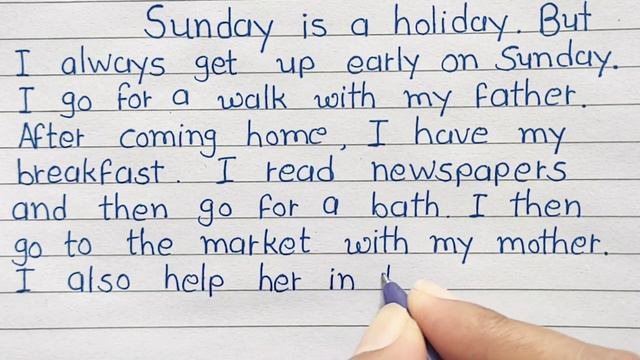 Sunday is a holiday. But
I always get up early on Sunday.
I go for a walk with my father.
After coming home, I have my
breakfast. I read newspapers
and then go for a bath. I then
go to the market with my mother.
I also help her in